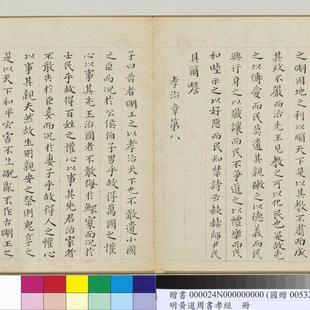 之明因地之利以順天下是以其教不肅而成
其政不嚴而治先王見教之可以化民也是故先
之以博愛而民莫遺其親敶之以德義而民
興行先之以敬讓而民不爭道之以禮樂而民
和睦示之以好惡而民知禁詩云赫赫師尹民
具爾瞻
孝治章第八
子曰昔者明王之以孝治天下也不敢遺小國
之臣而況於公侯伯子男乎故得萬國之懽
心以事其先王治國者不敢侮於鰥寡而況於
士民乎故得百姓之懽心以事其先君治家者
不敢失於臣妾而況於妻子乎故得人之懽心
以事其親夫然故生則親安之祭則鬼享之
是以天下和平災害不生禍亂不作故明王之
贈書 000024N000000000 (國贈 00532
明黃道周書孝經 冊